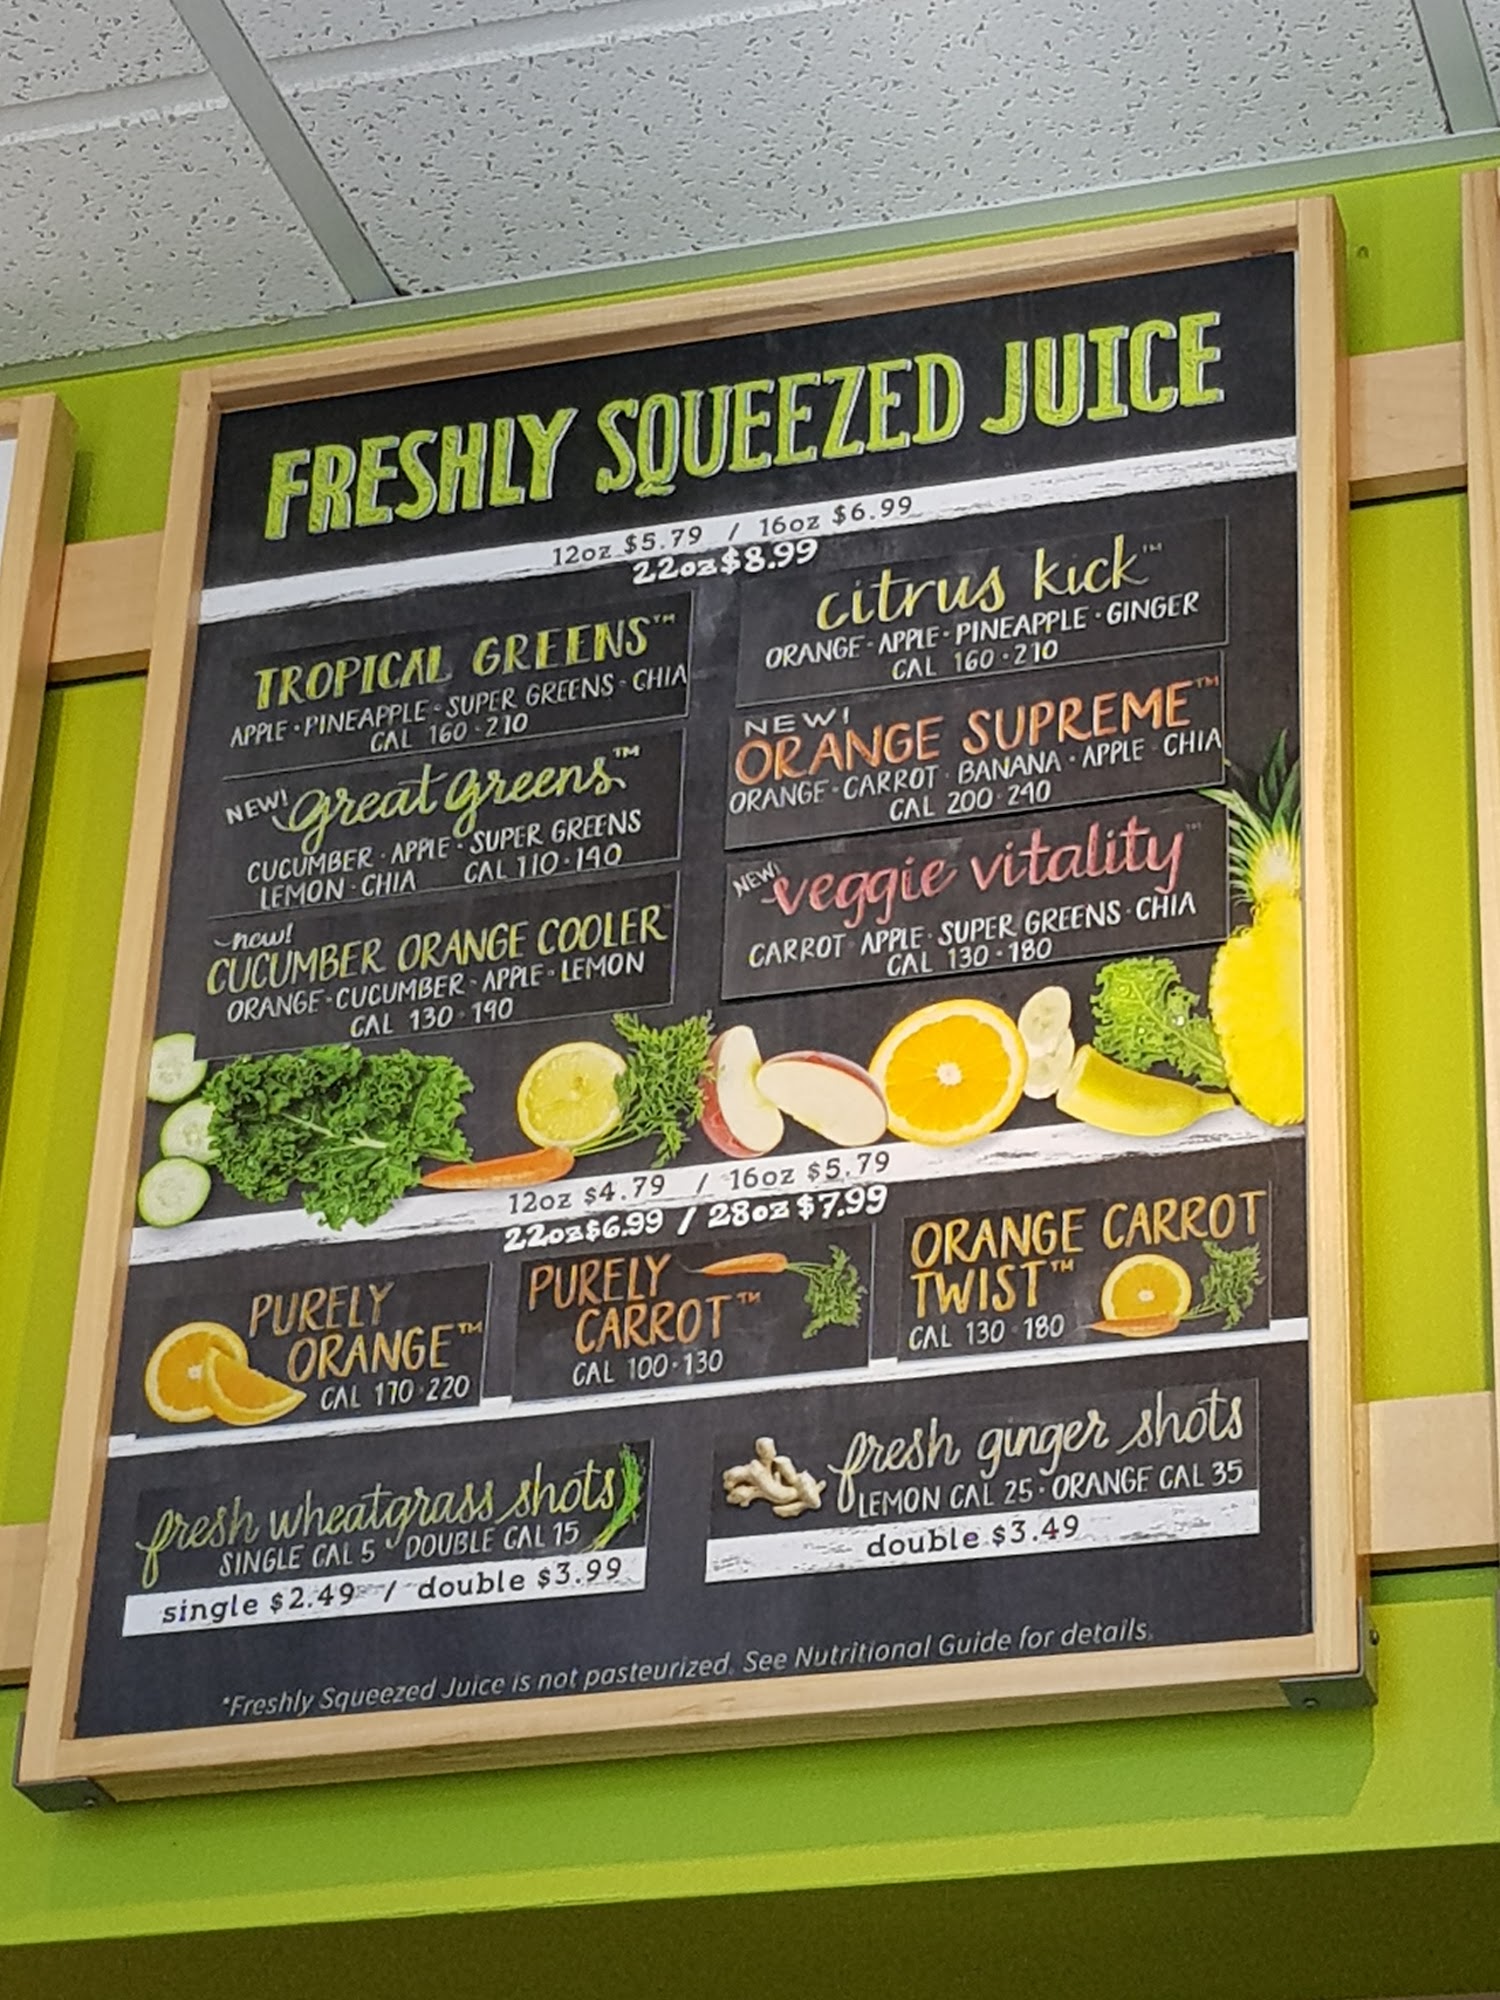 FRESHLY SQUEEZED JUICE
12oz $5.79 / 16oz $6.99
22oz $8.99
TROPICAL GREENS™
APPLE · PINEAPPLE · SUPER GREENS · CHIA
CAL 160 · 210
NEW! great greens™
CUCUMBER · APPLE · SUPER GREENS
LEMON · CHIA CAL 110 · 140
new!
CUCUMBER ORANGE COOLER™
ORANGE · CUCUMBER · APPLE · LEMON
CAL 130 · 190
citrus kick™
ORANGE · APPLE · PINEAPPLE · GINGER
CAL 160 · 210
NEW!
ORANGE SUPREME™
ORANGE · CARROT · BANANA · APPLE · CHIA
CAL 200 · 240
NEW! veggie vitality™
CARROT · APPLE · SUPER GREENS · CHIA
CAL 130 · 180
12oz $4.79 / 16oz $5.79
22oz $6.99 / 28oz $7.99
PURELY
ORANGE™
CAL 170 · 220
PURELY
CARROT™
CAL 100 · 130
ORANGE CARROT
TWIST™
CAL 130 · 180
fresh wheatgrass shots
SINGLE CAL 5 · DOUBLE CAL 15
single $2.49 / double $3.99
fresh ginger shots
LEMON CAL 25 · ORANGE CAL 35
double $3.49
*Freshly Squeezed Juice is not pasteurized. See Nutritional Guide for details.